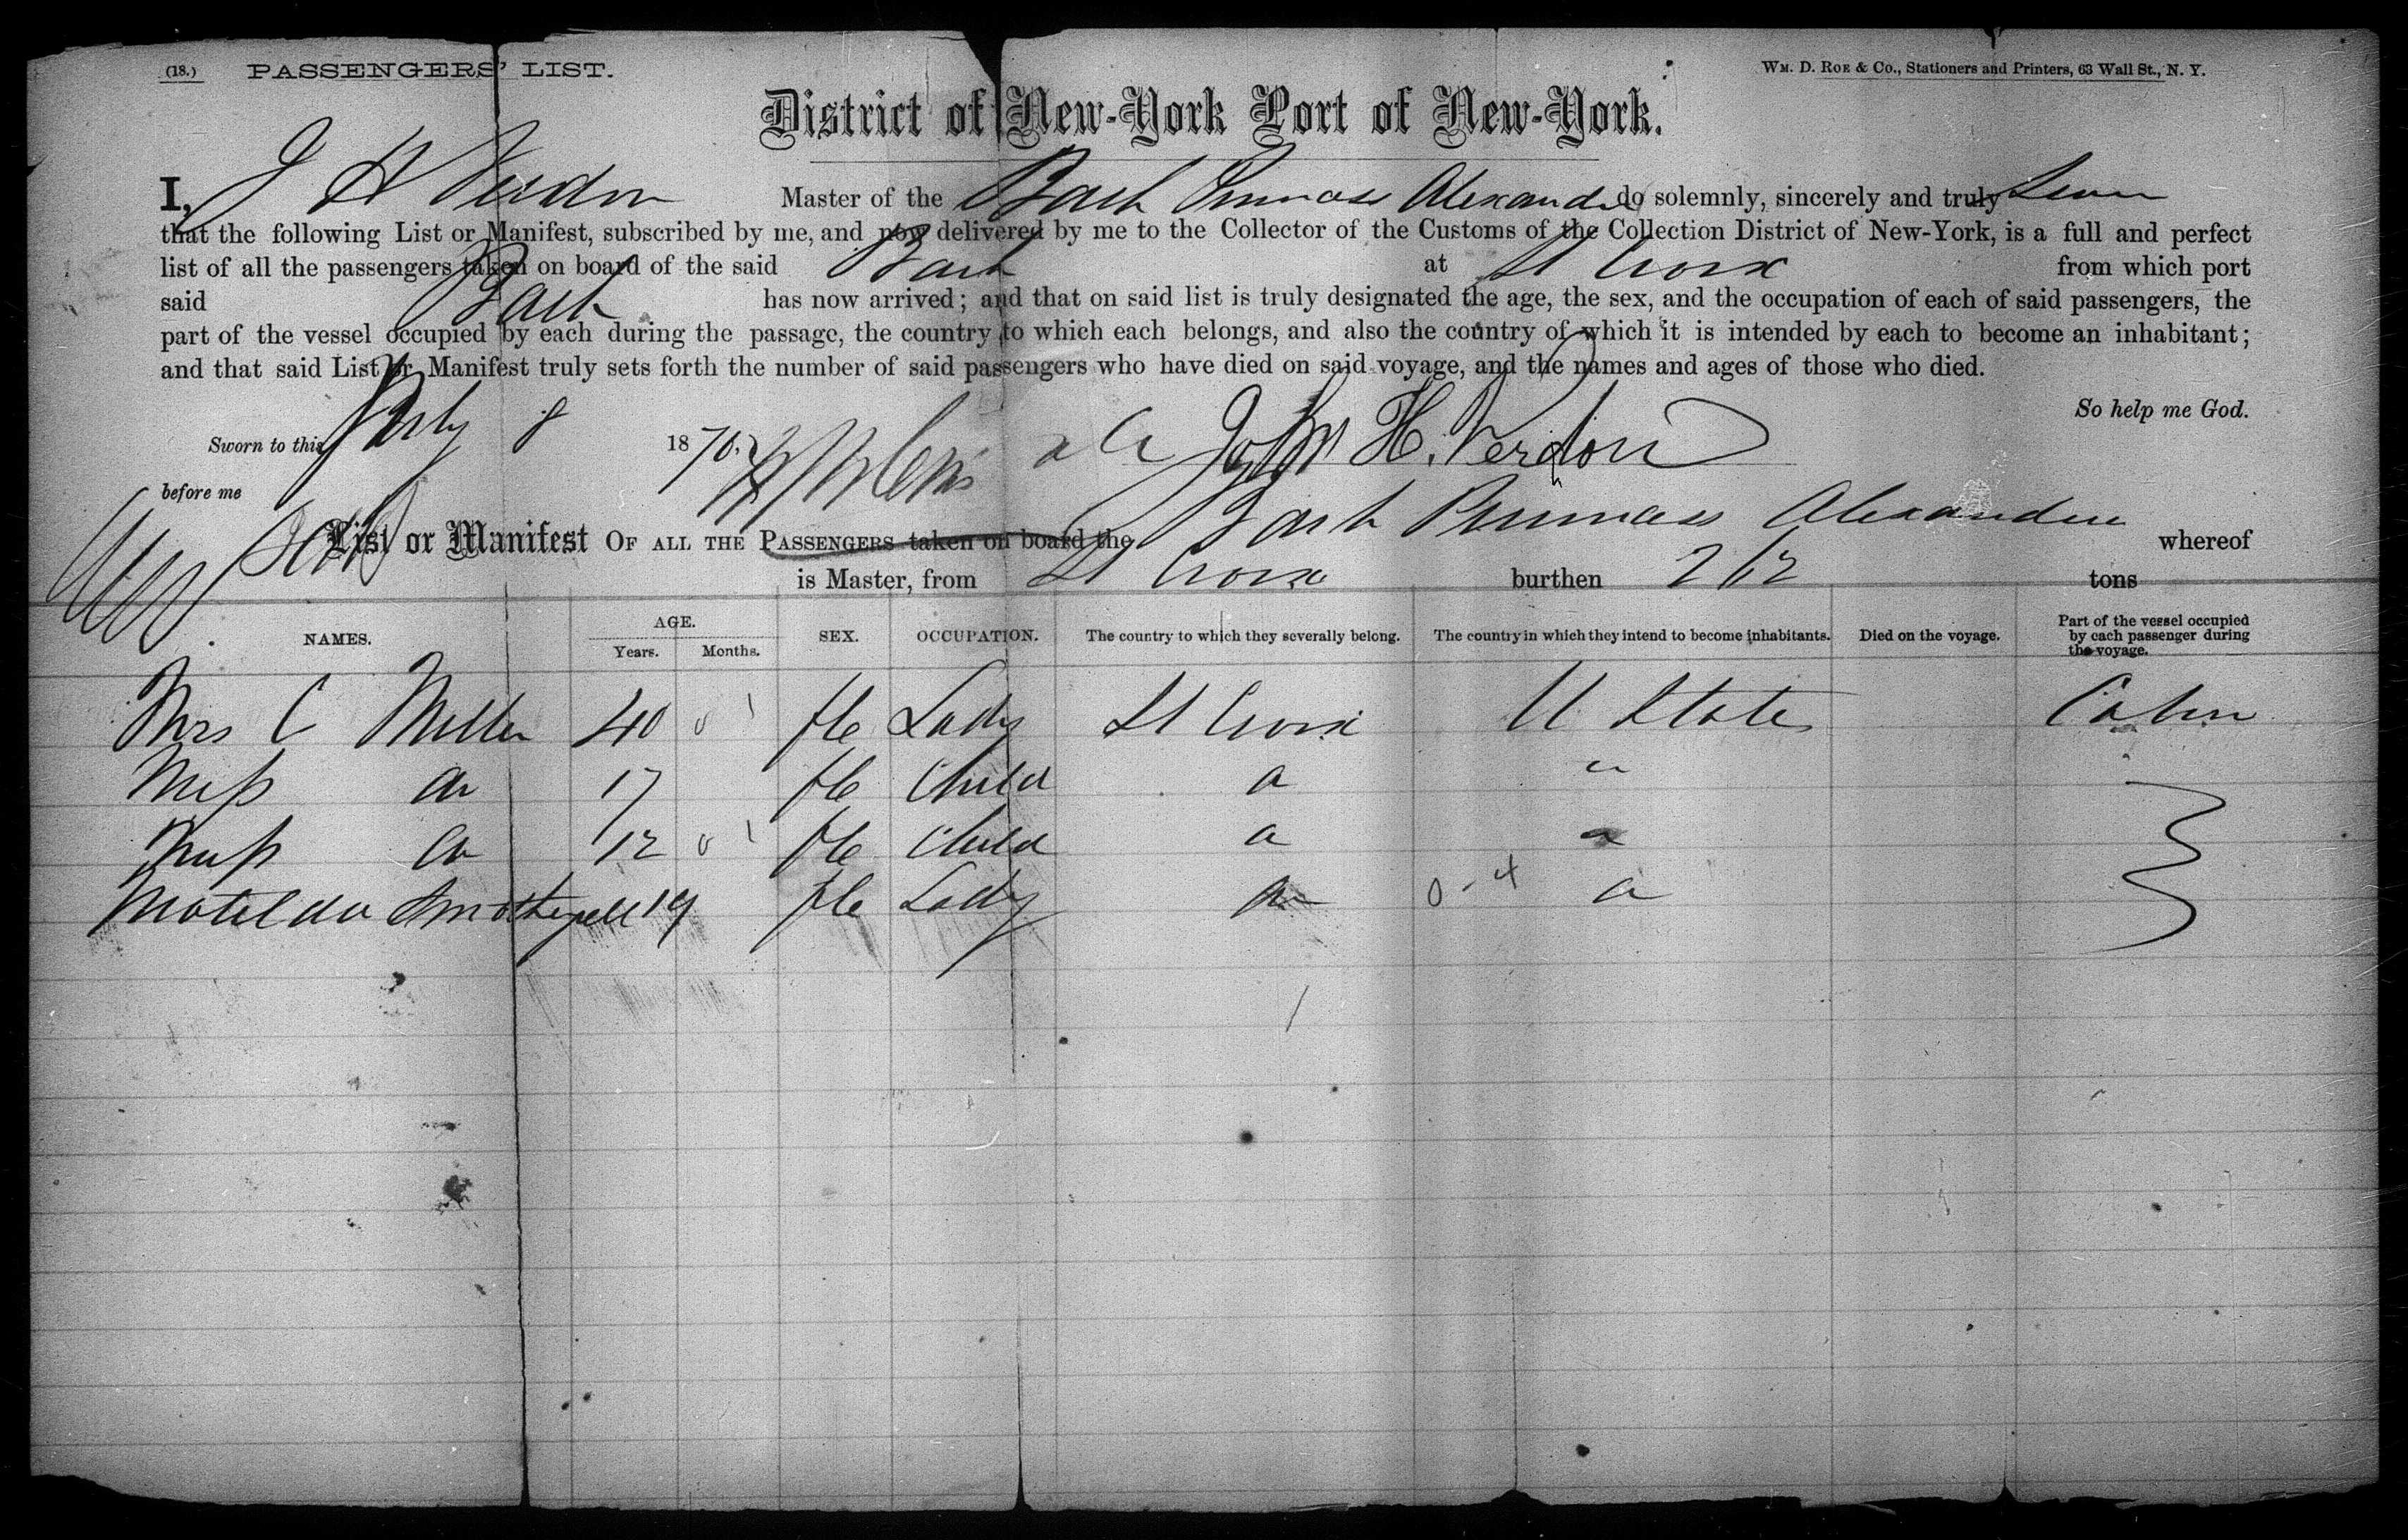 (18.) PASSENGERS' LIST.
WM. D. ROE & CO., Stationers and Printers, 63 Wall St., N. Y.
District of New-York Port of New-York.
I, J H Verdon Master of the Bark Princess Alexandra do solemnly, sincerely and truly Swear
that the following List or Manifest, subscribed by me, and now delivered by me to the Collector of the Customs of the Collection District of New-York, is a full and perfect
list of all the passengers taken on board of the said Bark at St Croix from which port
said Bark has now arrived; and that on said list is truly designated the age, the sex, and the occupation of each of said passengers, the
part of the vessel occupied by each during the passage, the country to which each belongs, and also the country of which it is intended by each to become an inhabitant;
and that said List or Manifest truly sets forth the number of said passengers who have died on said voyage, and the names and ages of those who died.
So help me God.
Sworn to this July 8 1870 John H. Verdon
before me
List or Manifest OF ALL THE PASSENGERS taken on board the Bark Princess Alexandra whereof
is Master, from St Croix burthen 212 tons
NAMES. AGE. Years. Months. SEX. OCCUPATION. The country to which they severally belong. The country in which they intend to become inhabitants. Died on the voyage. Part of the vessel occupied by each passenger during the voyage.
Mrs C Miller 40 fle Lady St Croix U States Cabin
Miss do 17 fle Child " "
Miss do 12 fle Child " "
Matilda 19 fle Lady " 0-4 "